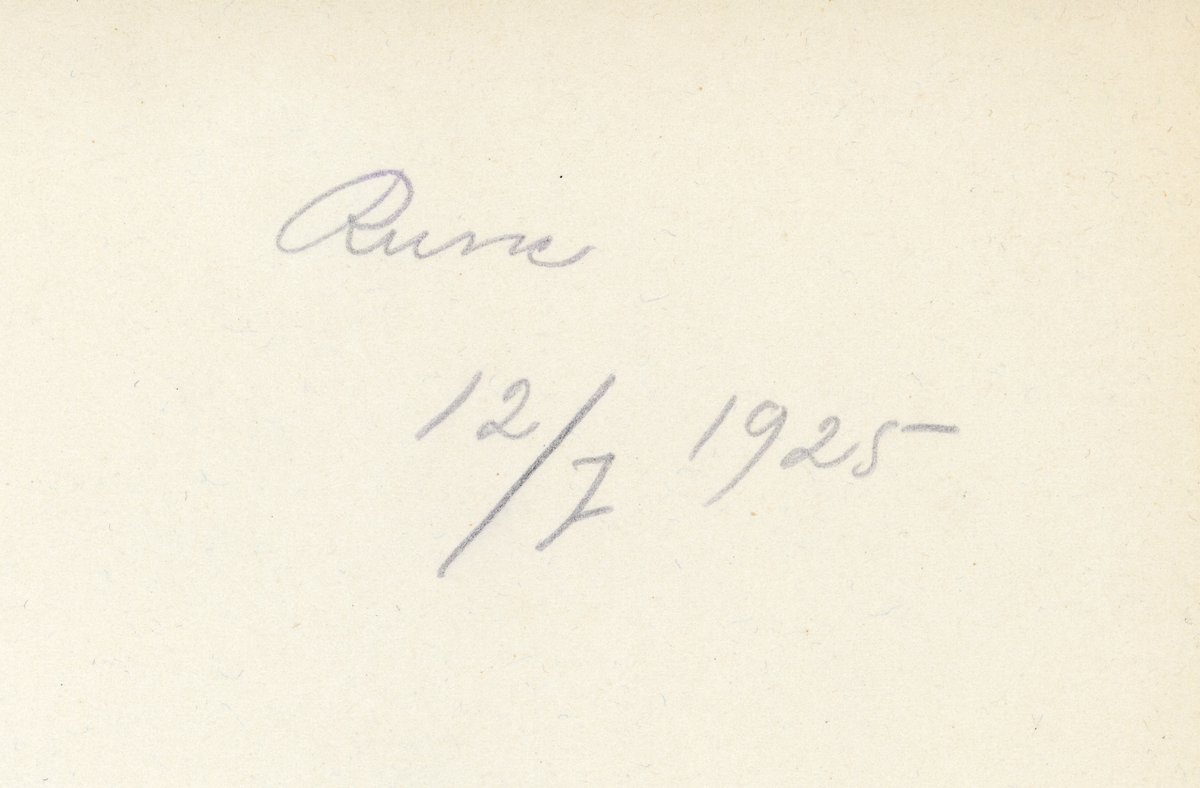 Rune
12/7 1925